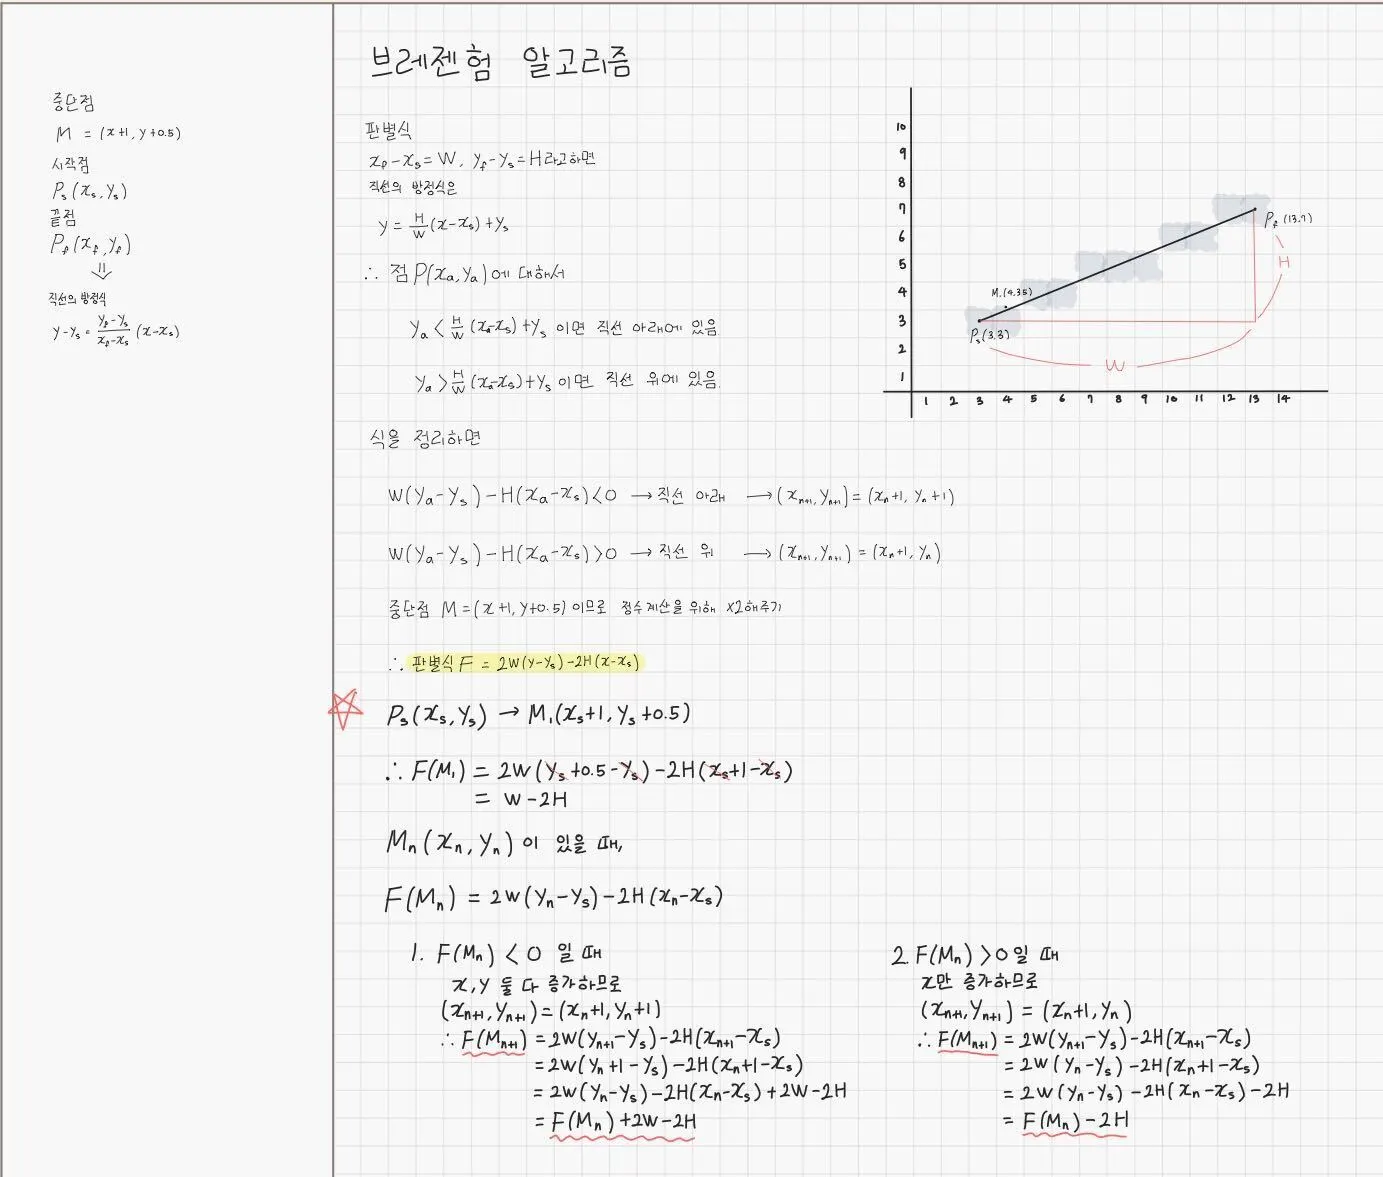 브레젠험 알고리즘
중단점
M = (x+1, y+0.5)
시작점
Ps(xs, ys)
끝점
Pf(xf, yf)
⇓
직선의 방정식
y-ys = (yf-ys)/(xf-xs) (x-xs)
판별식
xf-xs=W, yf-ys=H라고하면
직선의 방정식은
y = H/W(x-xs)+ys
∴ 점 P(xa, ya)에 대해서
ya < H/W(xa-xs)+ys 이면 직선 아래에 있음.
ya > H/W(xa-xs)+ys 이면 직선 위에 있음.
10
9
8
7
6
5
4
3
2
1
1 2 3 4 5 6 7 8 9 10 11 12 13 14
Pf(13.7)
H
M1(4.35)
Ps(3.3)
W
식을 정리하면
W(ya-ys)-H(xa-xs)<0 → 직선 아래 → (xn+1, yn+1) = (xn+1, yn+1)
W(ya-ys)-H(xa-xs)>0 → 직선 위 → (xn+1, yn+1) = (xn+1, yn)
중단점 M=(x+1, y+0.5)이므로 정수계산을 위해 x2해주기
∴ 판별식 F = 2W(y-ys)-2H(x-xs)
Ps(xs, ys) → M1(xs+1, ys+0.5)
∴ F(M1) = 2W(ys+0.5-ys)-2H(xs+1-xs)
= W-2H
Mn(xn, yn)이 있을 때,
F(Mn) = 2W(yn-ys)-2H(xn-xs)
1. F(Mn) < 0 일 때
x, y 둘 다 증가하므로
(xn+1, yn+1)=(xn+1, yn+1)
∴ F(Mn+1) = 2W(yn+1-ys)-2H(xn+1-xs)
= 2W(yn+1-ys)-2H(xn+1-xs)
= 2W(yn-ys)-2H(xn-xs)+2W-2H
= F(Mn)+2W-2H
2. F(Mn) > 0일 때
x만 증가하므로
(xn+1, yn+1) = (xn+1, yn)
∴ F(Mn+1) = 2W(yn+1-ys)-2H(xn+1-xs)
= 2W(yn-ys)-2H(xn+1-xs)
= 2W(yn-ys)-2H(xn-xs)-2H
= F(Mn)-2H